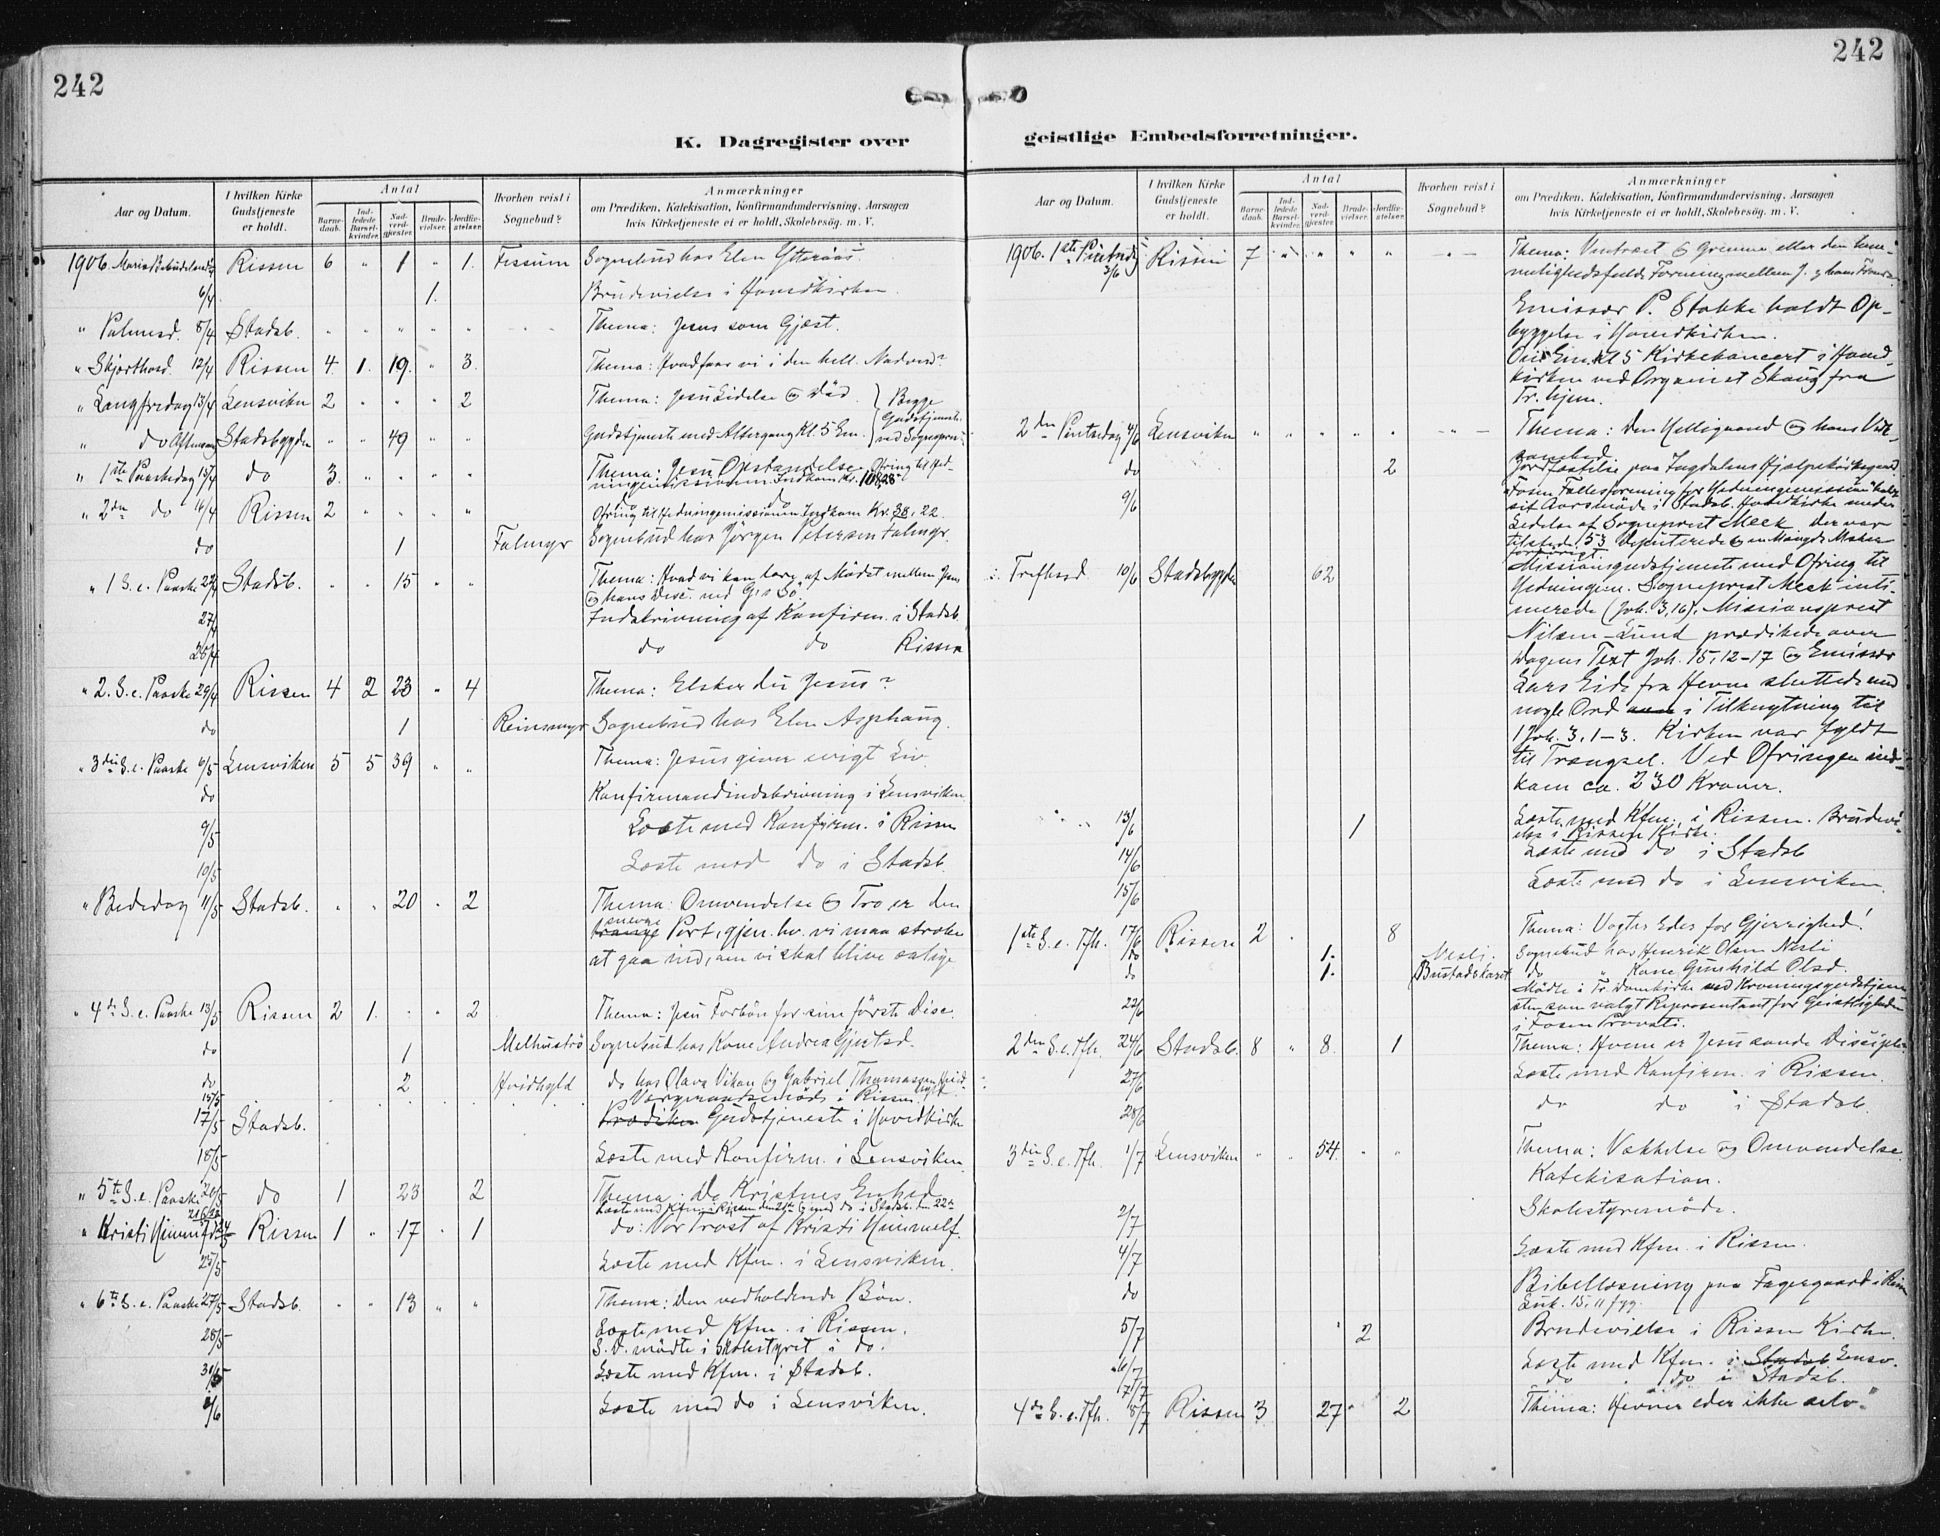 242
242
K. Dagregister over geistlige Embedsforretninger.
Aar og Datum.
I hvilken Kirke Gudstjeneste er holdt.
Antal
Barne-daab.
Ind-ledede Barsel-kvinder.
Nad-verd-gjester.
Brude-vielser.
Jordfæ-stelser.
Hvorhen reist i Sognebud?
Anmærkninger
om Prædiken, Katekisation, Konfirmandundervisning, Aarsagen
hvis Kirketjeneste ei er holdt, Skolebesøg. m. V.
1906. Marie Bebudelsesd. Rissen 6 " 1 " 1. Fissum Sognebud hos Elen Ytteraas.
6/4 1. Brudevielse i Hovedkirken
" Palmesd. 8/4 Stadsb. " " " " " Thema: Jesus som Gjæst.
" Skjærthosd. 12/4 Rissen 4 1. 19. " 3. Thema: Hvad faar vi i den hell. Nadverd?
" Langfredag 13/4 Lensviken 2 " " " 2 Thema: Jesu Lidelse og Död. } Begge
" do Aftensang Stadsbygden " " 49 " " Gudstjeneste med Altergang Kl. 5 Em. } Gudstjenester ved Sognepr.
" 1ste Paaskedag 15/4 do 3. " " " " Thema: Jesu Opstandelse. Ofring til Hed-
ningemissionen. Indkom Kr. 108.28
" 2den do 16/4 Rissen 2 " " " " do
Ofring til Hedningemissionen Indkom Kr. 38,22.
do 1 Falmyr Sognebud hos Jörgen Petersen Falmyr.
" 1 S. e. Paaske 22/4 Stadsb. " " 15 " " Thema: Hvad vi kan lære af Mödet mellem Jesus
og hans Disc. ved Gis Sö.
27/4 Indskrivning af Konfirm. i Stadsb.
28/4 do do Rissen
" 2. S. e. Paaske 29/4 Rissen 4 2 23 " 4 Thema: Elsker du Jesus?
do 1 Reinsmyr Sognebud hos Elen Asphaug.
" 3die S. e. Paaske 6/5 Lensviken 5 5 39 " " Thema: Jesus giver evigt Liv.
do Konfirmandindskrivning i Lensviken
9/5 Læste med Konfirm. i Rissen
10/5 Læste med do i Stadsb.
" Bededag 11/5 Stadsb. " " 20 " 2 Thema: Omvendelse og Tro er den
snevre
trange Port, gjen. hv. vi maa stræbe
at gaa ind, om vi skal blive salige.
" 4de S. e. Paaske 13/5 Rissen 2 1. " " 2 Thema: Jesu Forbön for sine förste Disc.
do 1 Melhuströ Sognebud hos Kone Andrea Gjertsd.
do 2 Hvidhyld do hos Olava Vikan og Gabriel Thomassen Hvidhyld
15/5 Værgemandsmöde i Rissen.
17/5 Stadsb. Prædiken Gudstjeneste i Hovedkirke
18/5 Læste med Konfirm. i Lensviken.
" 5te S. e. Paaske 20/5 do 1 23 2 Thema: De Kristnes Enhed
21 & 22 Læste med Kfm. i Rissen den 21de og med do i Stadsb. den 22de
" Kristi Himmelfd. 24/5 Rissen 1 " 17 " 1 do: Vor Tröst af Kristi Himmelf.
25/5 Læste med Kfm. i Lensviken.
" 6te S. e. Paaske 27/5 Stadsb. " " 13 " " Thema: Den vedholdende Bön.
28/5 Læste med Kfm. i Rissen.
S. D. mödte i Skolestyret i do.
31/5 Læste med Kfm. i Stadsb.
1/6 Læste med do i Lensviken.
Aar og Datum.
I hvilken Kirke Gudstjeneste er holdt.
Antal
Barne-daab.
Ind-ledede Barsel-kvinder.
Nad-verd-gjester.
Brude-vielser.
Jordfæ-stelser.
Hvorhen reist i Sognebud?
Anmærkninger
om Prædiken, Katekisation, Konfirmandundervisning, Aarsagen
hvis Kirketjeneste ei er holdt, Skolebesøg. m. V.
1906. 1ste Pintsed. 3/6 Rissen 7 " " " " Thema: Vintræet og Grenene eller den hem-
melighedsfulde Forening mellem J. og hans Venner
Emissær P. Stokke holdt Op-
byggelse i Hovedkirken.
Om Em. Kl 5 Kirkekoncert i Hoved-
kirken ved Organist Skaug fra
Tr.hjem.
2den Pintsedag 4/6 Lensviken " " " " " Thema: Den Helligaand og hans Virk-
somhed.
do 2 Jordfæstelse paa Ingdalens Hjælpekirkegaard
9/6 Fosen Fællesforening for Hedningemission holdt
sit Aarsmöde i Stadsb. Hovedkirke under
Ledelse af Sogneprest Meek. Der var
tilstede 53 Deputerede og en Mængde Mennesker
forövrigt.
Trefoldsd. 10/6 Stadsbygden 62 Missionsgudstjeneste med Ofring til
Hedningem. Sogneprest Meek inti-
merede (Joh. 3,16). Missionsprest
Nilsen-Lund prædikede over
Dagens Text Joh. 15, 12-17 og Emissær
Lars Eide fra Hevne sluttede med
nogle Ord i Tilknytning til
1 Joh. 3, 1-3. Kirken var fyldt
til Trængsel. Ved Ofringen ind-
kom ca. 230 Kroner.
13/6 1 Læste med Kfm. i Rissen. Brudevi-
else i Rissen Kirke.
14/6 Læste med do i Stadsb
15/6 Læste med do i Lensviken.
1ste S. e. Tfh. 17/6 Rissen 2 " 8 Thema: Vogter Eder for Gjerrighed!
do 1. Nesli. Sognebud hos Henrik Olsen Nesli
do 1. Bustadskaret do " Kone Gunhild Olsd.
22/6 Mödte i Tr. Domkirke ved Kroningsgudstjene-
sten som valgt Repræsentant for Geistligheden
i Fosen Provsti.
2den S. e. Tfh. 24/6 Stadsb. 8 " 8 1 Thema: Hvem er Jesu sande Disciple
27/6 Læste med Konfirm. i Rissen.
28/6 do do i Stadsb.
3die S. e. Tfh. 1/7 Lensviken " " 54 " " Thema: Vækkelse og Omvendelse.
Katekisation.
2/7 Skolestyremöde.
4/7 Læste med Kfm. i Rissen.
do Bibellæsning paa Fagergaard i Rissen
Luk. 15, 11 fgg.
5/7 2 Brudevielse i Rissen Kirke.
6/7 Læste med Kfm. i Stadsb. Lensv.
7/7 do do i Stadsb.
4de S. e. Tfh. 8/7 Rissen 3 27 " 2 Thema: Hevner eder ikke selv"